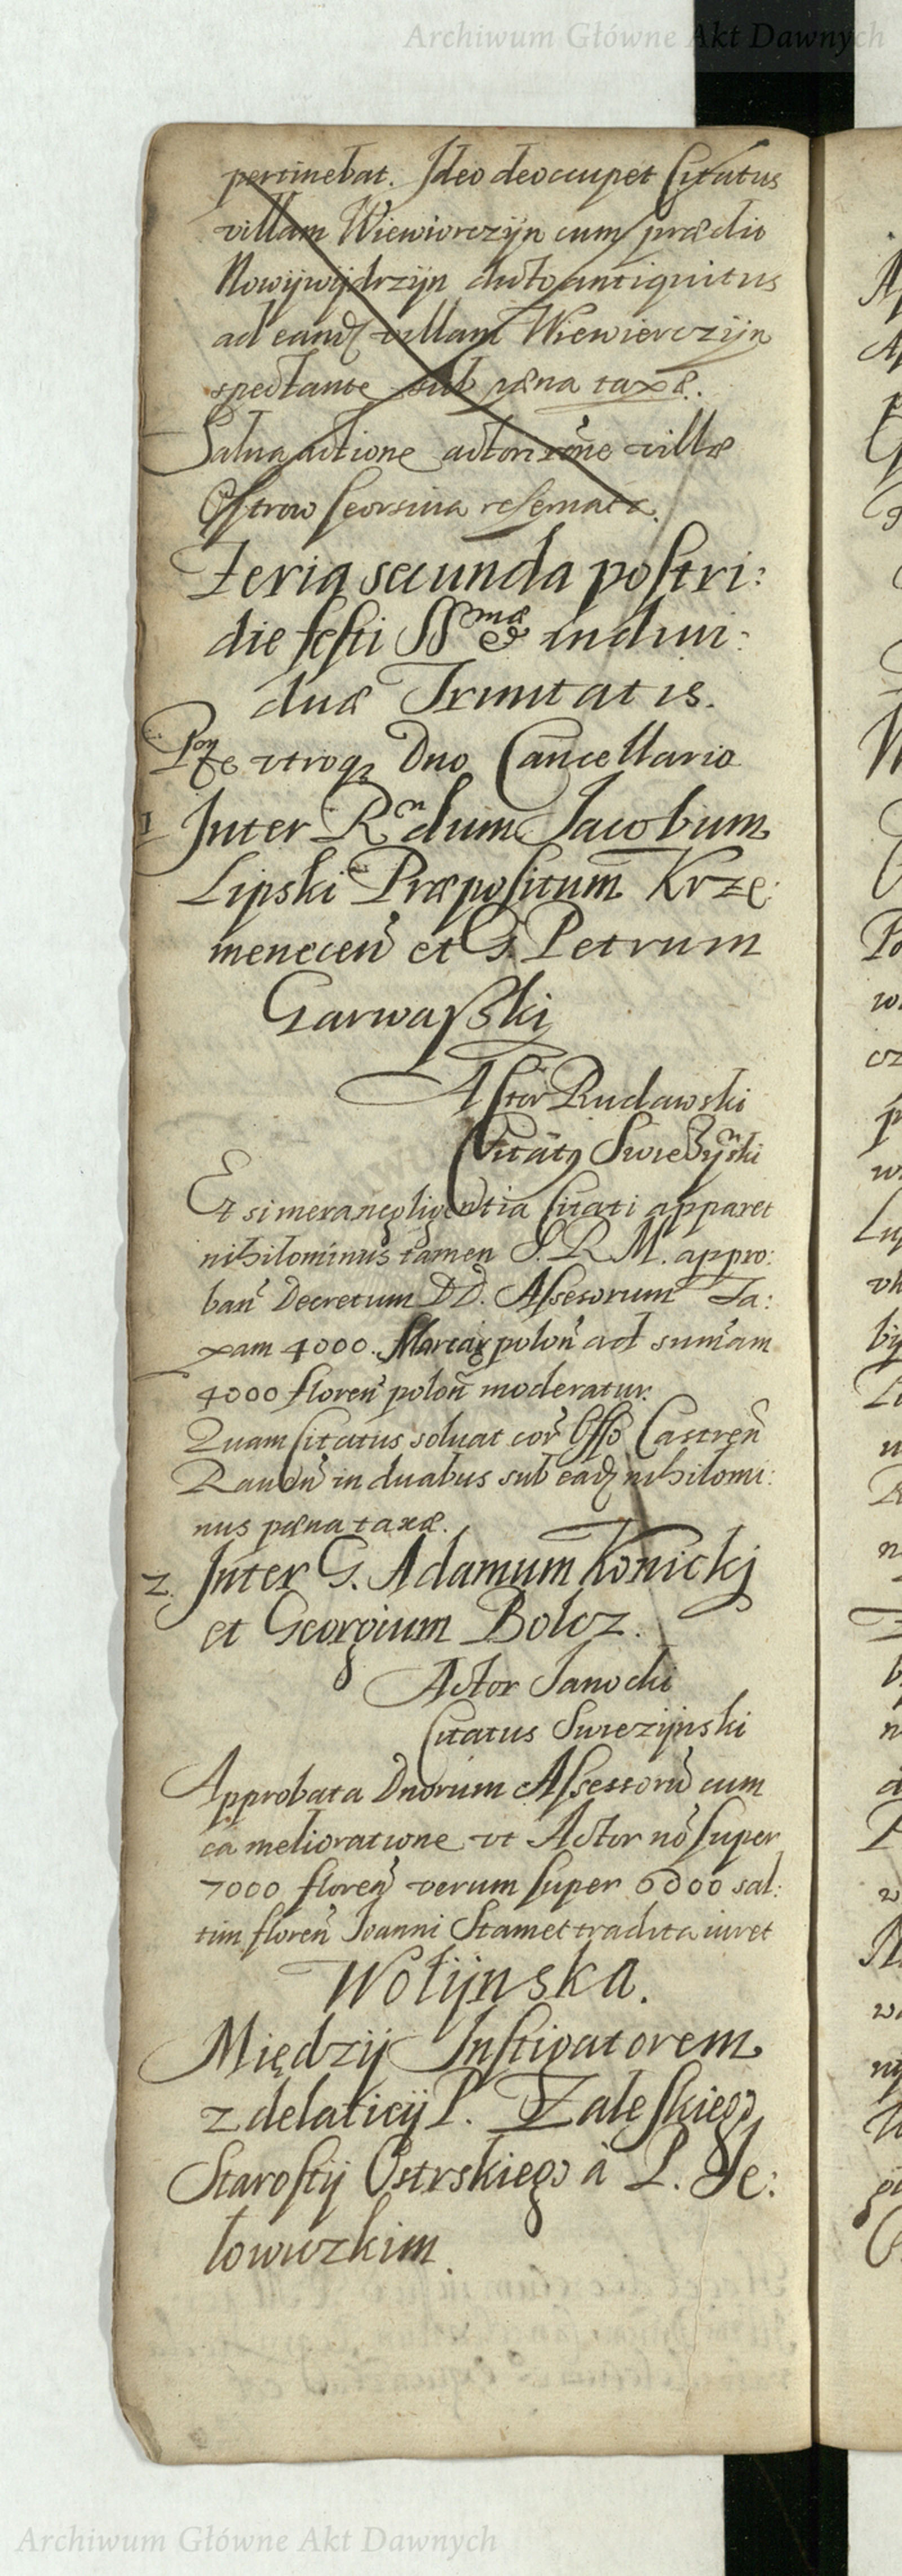 Archiwum Główne Akt Dawnych
pertinebat. Ideo deoccupet Citatus
villam Wiewiorczÿn cum prædio
Nowÿwÿdrzÿn dicto antiquitus
ad eand villam Wiewierczÿn
spectante sub pæna taxæ.
Salva actione ratione villæ
Ostrow seorsiva reservata.
Feria secunda postri:
die festi SSmæ et indiui:
duæ Trinitatis.
Pnte vtroq Dno Cancellario
1 Inter Rndum Jacobum
Lipski Præpositum Krze:
menecen et G. Petrum
Garwaßki
Actor Rudawski
Citatq Swieżÿnski
Et si mera negligentia Citati apparet
nihilominus tamen S. R. M. appro:
ban Decretum DD. Assesorum Ta:
xam 4000. Marcar polon ad sumam
4000 floren polon moderatur.
Quam Citatus soluat cor Offo Castren
Rauen in duabus sub ead nihilomi:
nus pæna taxæ.
2. Inter G. Adamum Konickj
et Georgium Bolcz.
Actor Janocki
Citatus Swiezÿnski
Approbata Dnorum Assessoru cum
ea melioratione vt Actor no super
7000 floren verum super 6000 sal:
tim floren Joanni Stamet tradita iuret
Wołÿnska.
Międzÿ Instigatorem
z delaticÿ P. Zaleskiego
Starostÿ Ostrskiego a P. Je:
łowiczkim.
Archiwum Główne Akt Dawnych